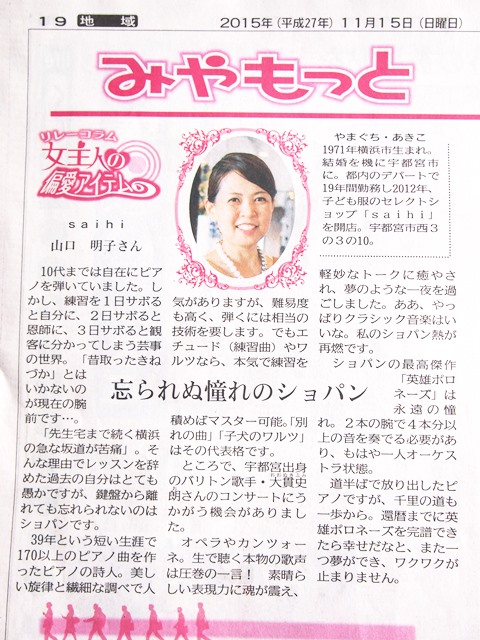 19 地域
2015年(平成27年) 11月15日(日曜日)
みやもっと
リレーコラム
女主人の
偏愛アイテム
saihi
山口 明子さん
やまぐち・あきこ
1971年横浜市生まれ。
結婚を機に宇都宮市
に。都内のデパートで
19年間勤務し2012年、
子ども服のセレクトシ
ョップ「saihi」
を開店。宇都宮市西3
の3の10。
忘られぬ憧れのショパン
10代までは自在にピア
ノを弾いていました。し
かし、練習を1日サボる
と自分に、2日サボると
恩師に、3日サボると観
客に分かってしまう芸事
の世界。「昔取ったきね
づか」とは
いかないの
が現在の腕
前です…。
「先生宅まで続く横浜
の急な坂道が苦痛」。そ
んな理由でレッスンを辞
めた過去の自分はとても
愚かですが、鍵盤から離
れても忘れられないのは
ショパンです。
39年という短い生涯で
170以上のピアノ曲を作
ったピアノの詩人。美し
い旋律と繊細な調べで人
気がありますが、難易度
も高く、弾くには相当の
技術を要します。でもエ
チュード(練習曲)やワ
ルツなら、本気で練習を
積めばマスター可能。「別
れの曲」「子犬のワルツ」
はその代表格です。
ところで、宇都宮出身
のバリトン歌手・大貫史
朗さんのコンサートにう
かがう機会がありまし
た。
オペラやカンツォー
ネ。生で聴く本物の歌声
は圧巻の一言! 素晴ら
しい表現力に魂が震え、
軽妙なトークに癒やさ
れ、夢のような一夜を過
ごしました。ああ、やっ
ぱりクラシック音楽はい
いな。私のショパン熱が
再燃です。
ショパンの最高傑作
「英雄ポロ
ネーズ」は
永遠の憧
れ。2本の腕で4本分以
上の音を奏でる必要があ
り、もはや一人オーケス
トラ状態。
道半ばで放り出したピ
アノですが、千里の道も
一歩から。還暦までに英
雄ポロネーズを完譜でき
たら幸せだなと、また一
つ夢ができ、ワクワクが
止まりません。